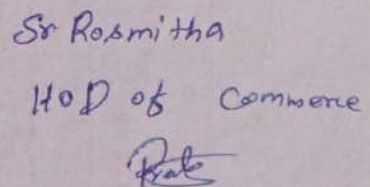 Sr Rosmitha
HOD of Commerce